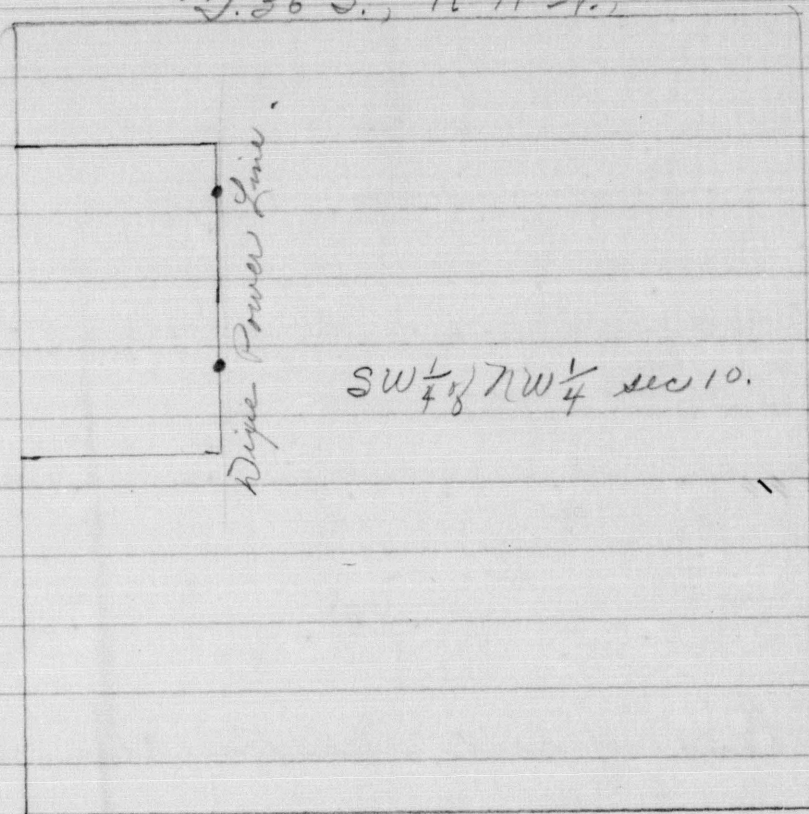 T. 36 S., R. 11
Dixie Power Line.
SW 1/4 of NW 1/4 sec 10.